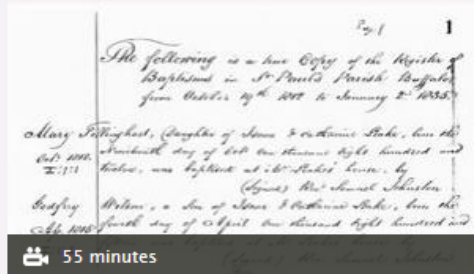 Page 1
1
The following is a true Copy of the Register of
Baptisms in St Paul's Parish Buffalo
from October 19th 1812 to January 2d 1835.
Mary Tillinghast, Daughter of Isaac & Catharine Leake, born the
Oct. 1812.
Nineteenth day of Oct. One thousand Eight hundred and
twelve, was baptized at Mr Leake's house, by
(Signed) Revd Samuel Johnston
Godfrey
Welson, a Son of Isaac & Catharine Leake, born the
Feb. 1815
fourth day of April One thousand Eight hundred and
55 minutes